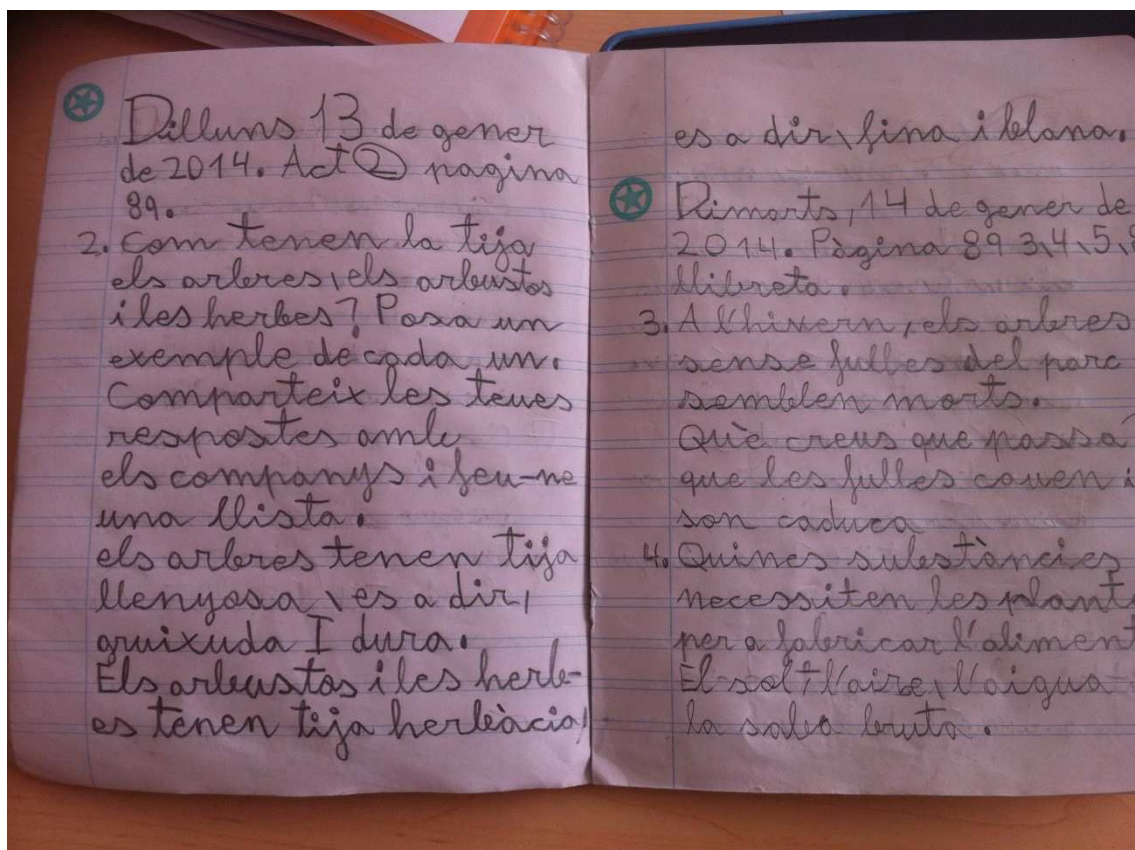 Dilluns 13 de gener
de 2014. Act 2 pagina
89.
2. Com tenen la tija
els arbres, els arbustos
i les herbes? Posa un
exemple de cada un.
Comparteix les teues
respostes amb
els companys i feu-ne
una llista.
els arbres tenen tija
llenyosa, es a dir,
gruixuda I dura.
Els arbustos i les herb-
es tenen tija herbàcia,
es a dir, fina i blana.
Dimarts, 14 de gener de
2014. Pàgina 89 3,4,5,
llibreta.
3. A l'hivern, els arbres
sense fulles del parc
semblen morts.
Què creus que passa
que les fulles cauen i
son caduca
4. Quines substàncies
necessiten les plant
per a fabricar l'aliment
El sol + l'aire, l'aigua
la saba bruta.